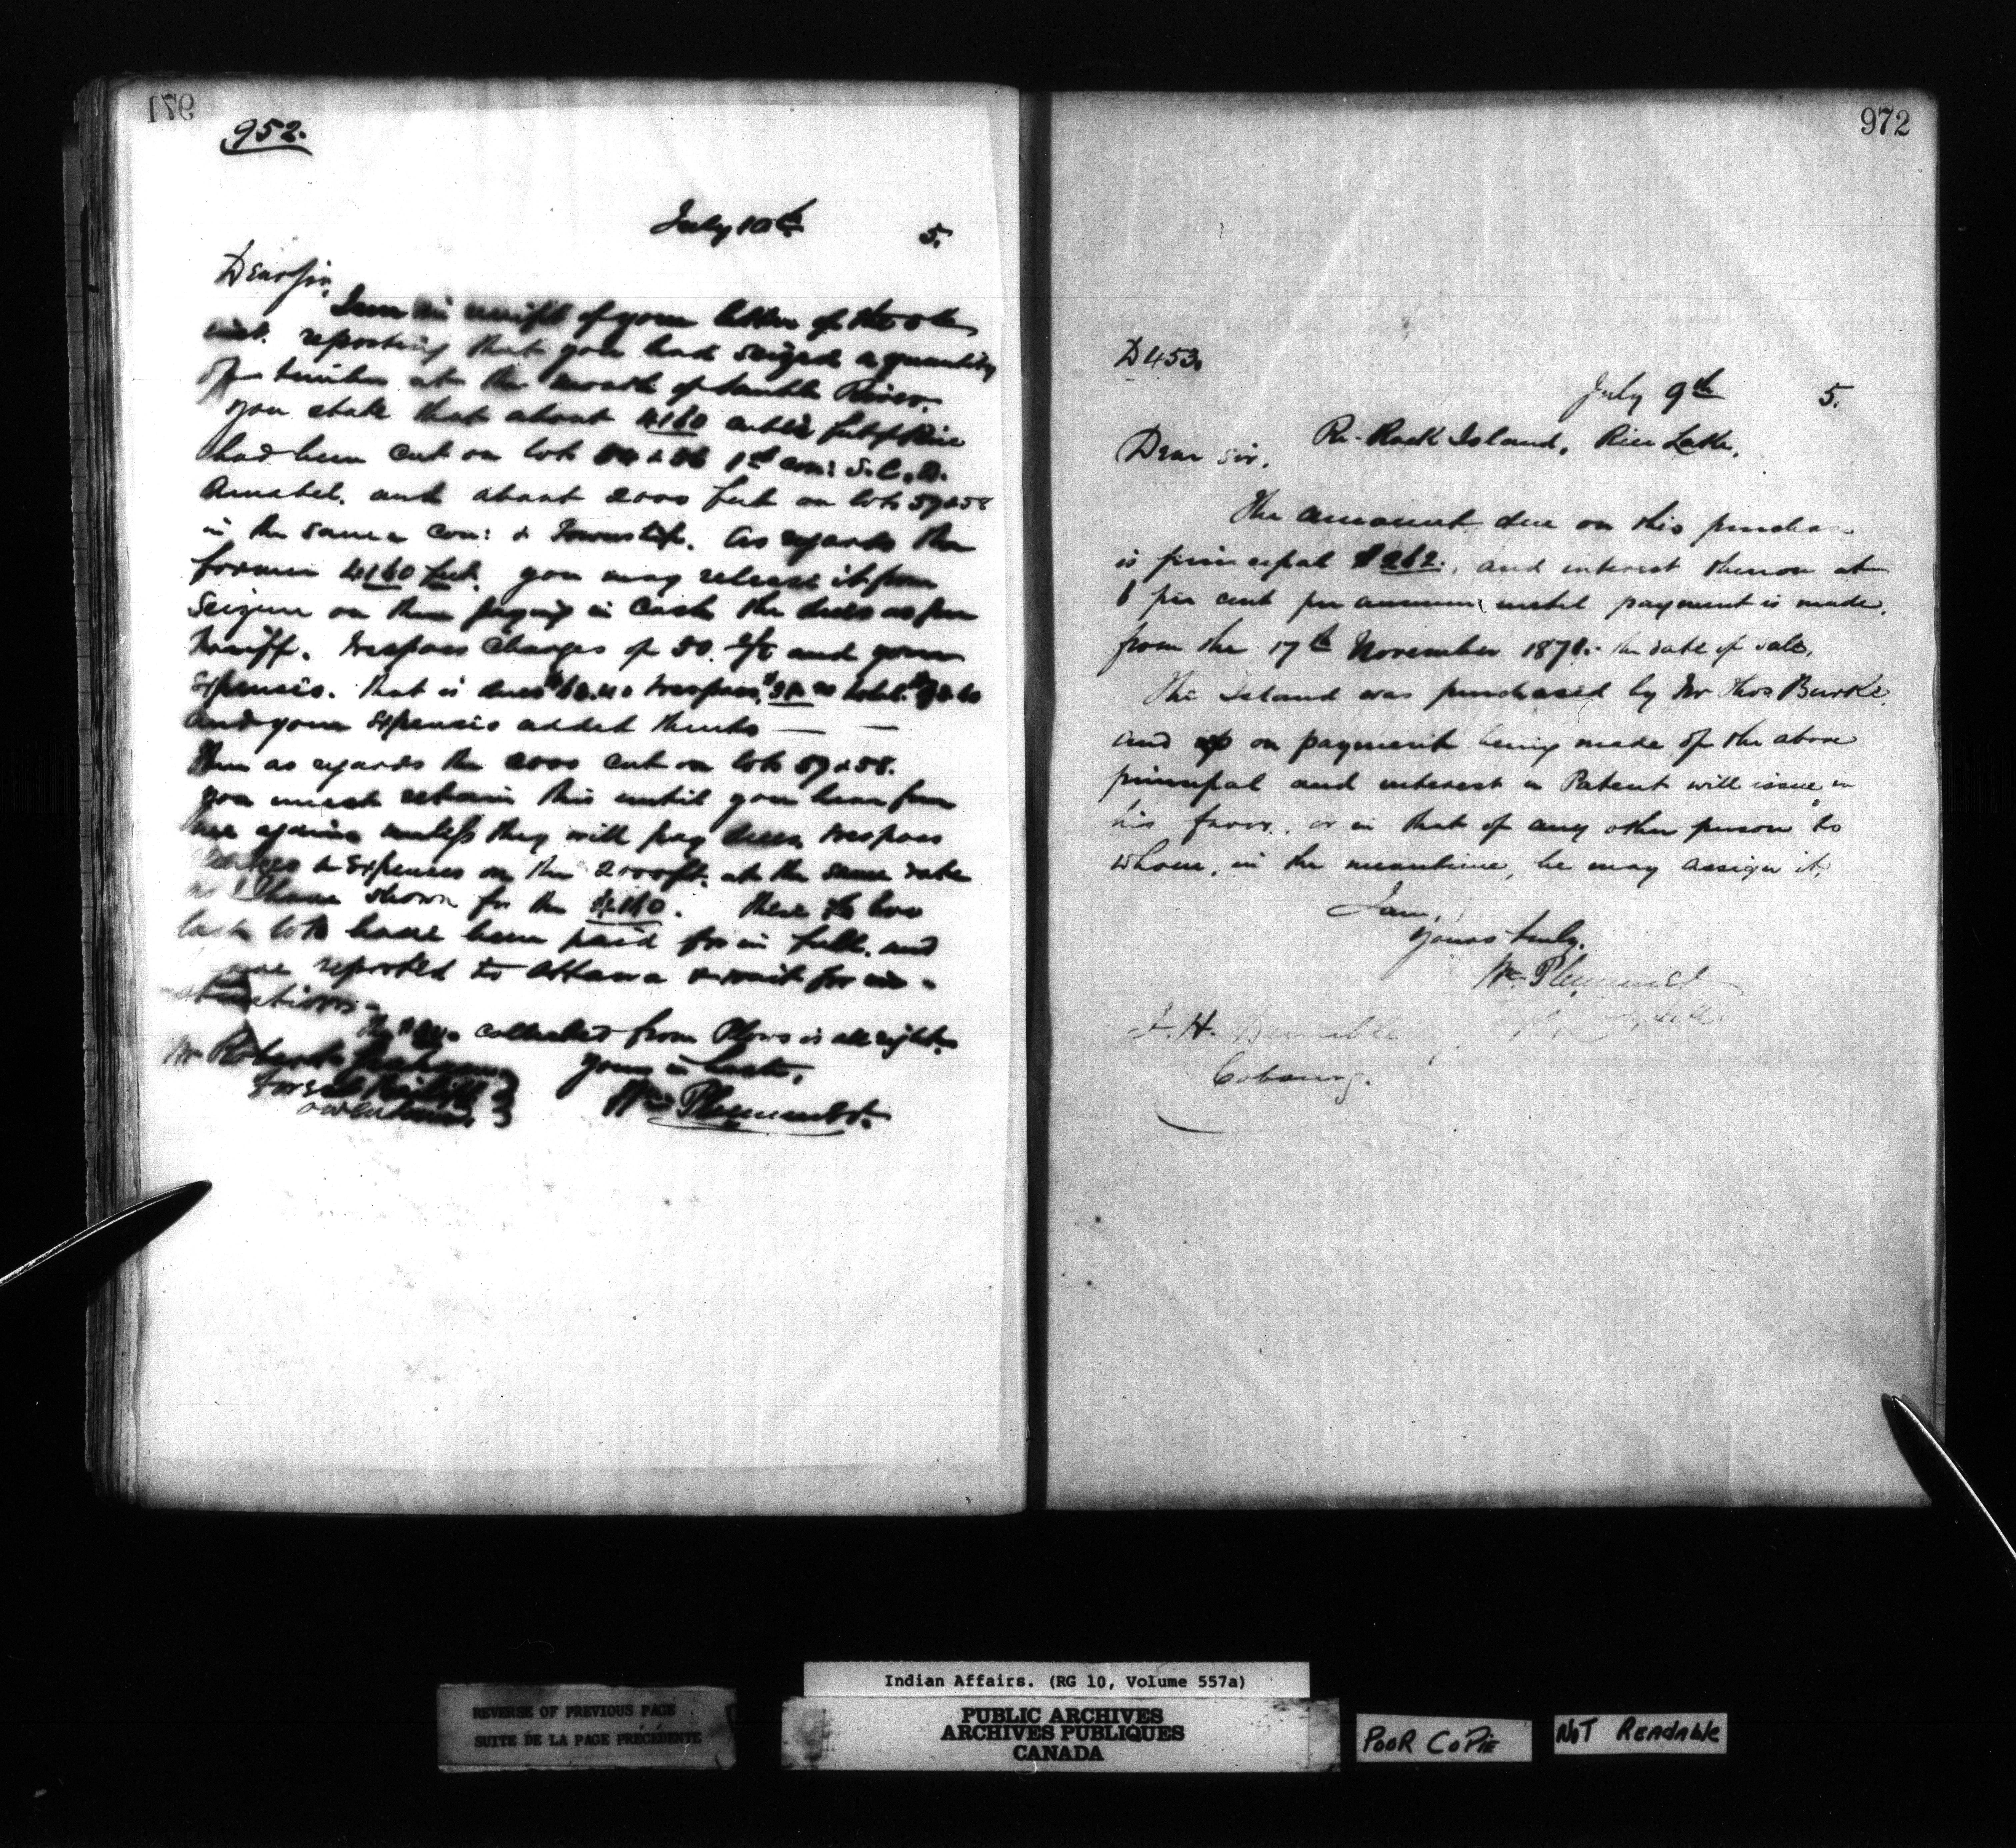 971
952.
July 10th 5.
Dear Sir,
I am in receipt of your letter of the
inst. reporting that you had seized a quantity
of timber at the mouth of Sauble River.
You state that about 4160 cubic feet of Pine
had been cut on lots 1st con: S.C.D.
Amabel. and about 2000 feet on lots 57 & 58
in the same con: & Township. As regards the
former 4160 feet. you may release it from
Seizure on them paying in Cash the dues as per
Tariff. Trespass Charges of 50. and your
Expenses. that is dues trespass total
and your Expenses added thereto — —
Then as regards the 2000 cut on lots 57 & 58.
you must retain this until you hear from
me again unless they will pay dues, trespass
charges & Expenses on the 2000 ft. at the same rate
as I have shown for the 4160. These two
last lots have been paid for in full. and
are reported to Ottawa & wait for in-
structions-
The collected from Plows is all right.
Mr Robert Yours in haste,
Forest Bailiff Wm Plummer.
Owen Sound.
972
D453.
July 9th 5.
Re- Rack Island, Rice Lake.
Dear Sir,
The amount due on this purchase
is principal $262., and interest thereon at
6 per cent per annum, until payment is made,
from the 17th November 1871.- the date of sale.
The Island was purchased by Mr Thos Burke.
and on payment being made of the above
principal and interest a Patent will issue in
his favor, or in that of any other person to
whom, in the meantime, he may assign it.
I am,
Yours truly.
Wm Plummer
J. H. Dumble
Cobourg.
REVERSE OF PREVIOUS PAGE
SUITE DE LA PAGE PRÉCÉDENTE
Indian Affairs. (RG 10, Volume 557a)
PUBLIC ARCHIVES
ARCHIVES PUBLIQUES
CANADA
POOR COPIE
NOT READABLE